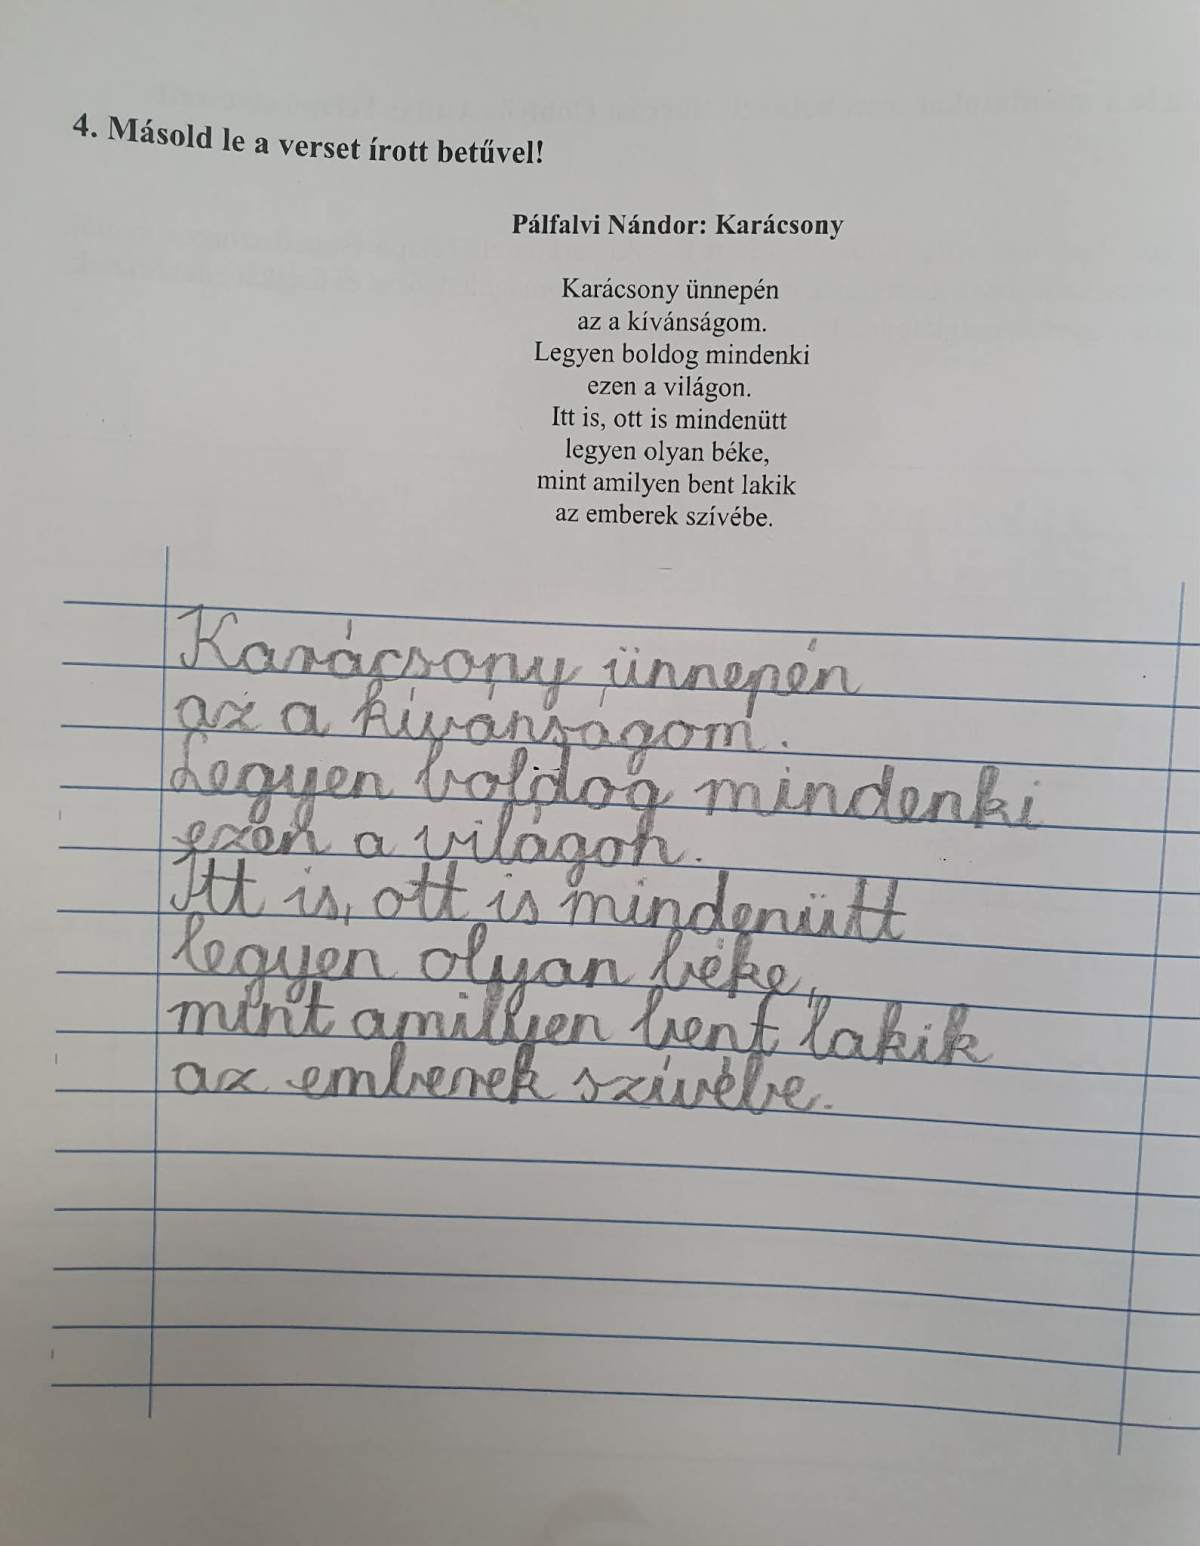 4. Másold le a verset írott betűvel!
Pálfalvi Nándor: Karácsony
Karácsony ünnepén
az a kívánságom.
Legyen boldog mindenki
ezen a világon.
Itt is, ott is mindenütt
legyen olyan béke,
mint amilyen bent lakik
az emberek szívébe.
Karácsony ünnepén
az a kívánságom.
Legyen boldog mindenki
ezen a világon.
Itt is, ott is mindenütt
legyen olyan béke,
mint amilyen bent lakik
az emberek szívébe.